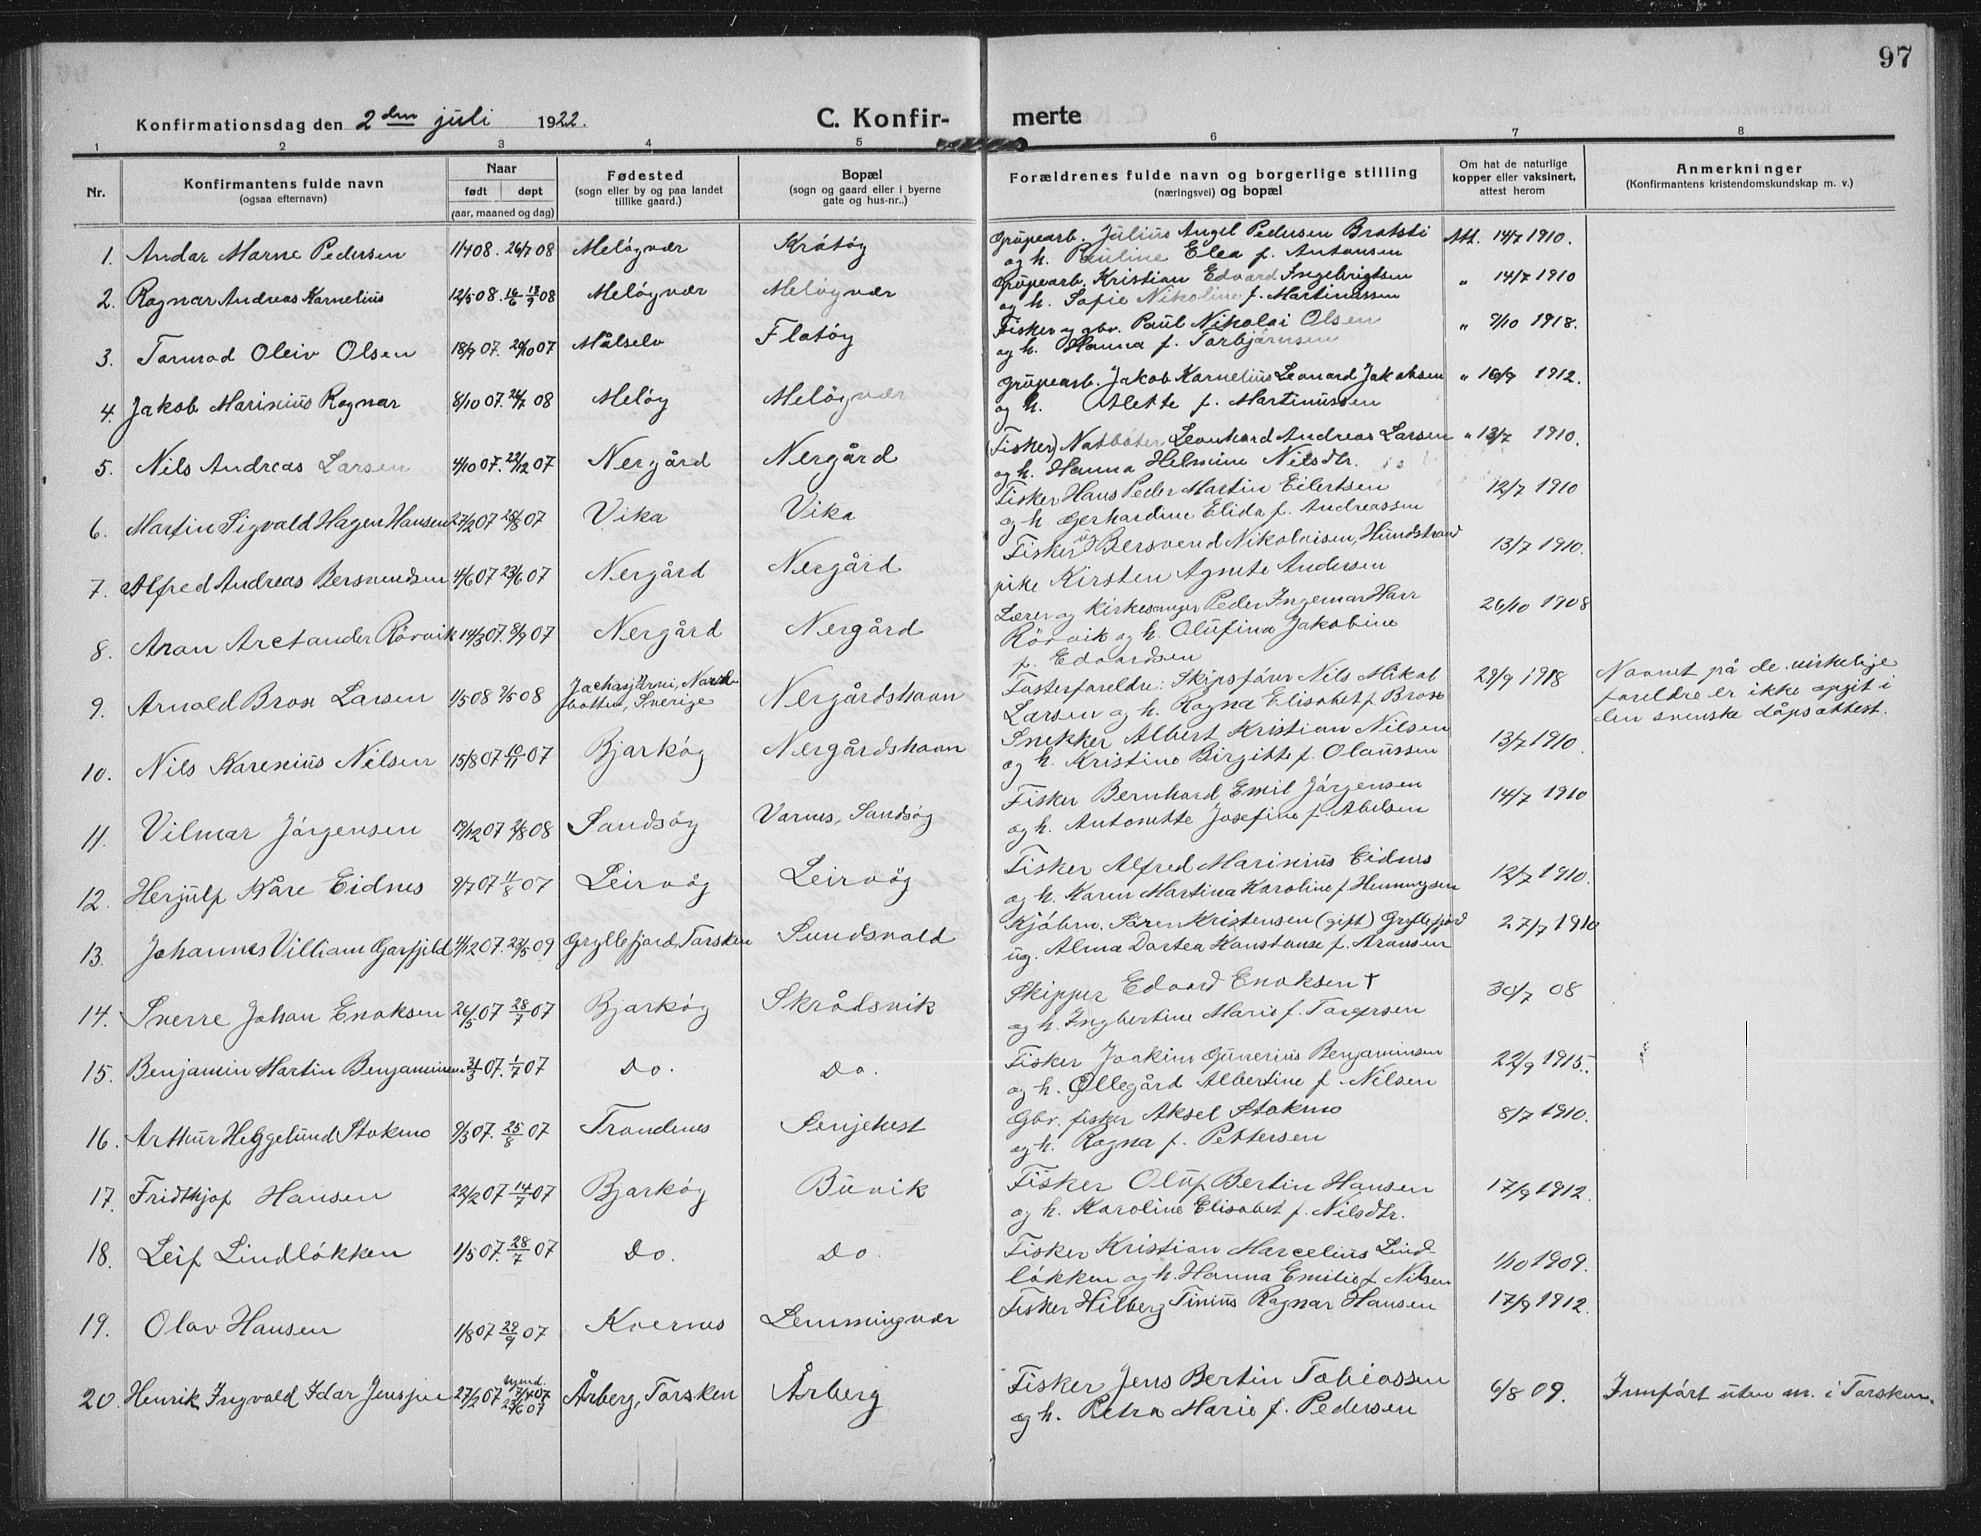 97
Konfirmationsdag den 2den juli 1922.
C. Konfir-
merte
1 2 3 4 5 6 7 8
Nr.
Konfirmantens fulde navn
(ogsaa efternavn)
Naar
født døpt
(aar, maaned og dag)
Fødested
(sogn eller by og paa landet
tillike gaard.)
Bopæl
(sogn og gaard eller i byerne
gate og hus-nr..)
Forældrenes fulde navn og borgerlige stilling
(næringsvei) og bopæl
Om hat de naturlige
kopper eller vaksinert,
attest herom
Anmerkninger
(Konfirmantens kristendomskundskap m. v.)
1. Andar Marne Pedersen 11/4 08. 26/7 08 Meløyvær Kråtøy
Grubearb. Julius Angel Pedersen Bratsti Att. 14/7 1910.
og h. Pauline Elea f. Antonsen
2. Ragnar Andreas Kornelius 12/5 08. 16/6 - 13/9 08 Meløyvær Meløyvær
Grubearb. Kristian Edvard Ingebrigtsen " 14/7 1910
og h. Sofie Nikoline f. Martinussen
3. Tormod Oleiv Olsen 18/9 07. 20/10 07 Målselv Flatøy
Fisker og gbr. Paul Nikolai Olsen " 9/10 1918.
og h. Hanna f. Torbjørnsen
4. Jakob Marinius Ragnar 8/10 07. 26/7 08 Meløy Meløyvær
Grubearb. Jakob Kornelius Leonard Jakobsen " 16/9 1912.
og h. Alette f. Martinussen
5. Nils Andreas Larsen 4/10 07. 22/12 07 Nergård Nergård
(Fisker) Notbøter Leonhard Andreas Larsen " 13/7 1910.
og h. Hanna Helmine Nilsdtr.
6. Martin Sigvald Hagen Hansen 27/2 07 25/8 07 Vika Vika
Fisker Hans Peder Martin Eilertsen 12/7 1910
og h. Gerhardine Elida f. Andreassen
7. Alfred Andreas Bersvendsen 4/6 07 23/6 07 Nergård Nergård
Fisker ug Bersvend Nikolaisen, Hundstrand 13/7 1910.
pike Kirsten Agnete Andersen
8. Aron Arctander Rörvik 14/3 07. 8/9 07 Nergård Nergård
Lærer og kirkesanger Peder Ingemar Harr 26/10 1908
Rörvik og h. Olufina Jakobine
f. Edvardsen
9. Arnold Brox Larsen 1/5 08 3/5 08 botten, Sverige Nergårdshavn
Fosterforeldre: Skipsförer Nils Mikal 29/9 1918
Larsen og h. Ragna Elisabet f. Brox
Navnet på de virkelige
foreldre er ikke opgit i
den svenske dåpsattest.
10. Nils Karenius Nilsen 15/8 07 10/11 07 Bjarköy Nergårdshavn
Snekker Albert Kristian Nilsen 13/7 1910.
og h. Kristine Birgitte f. Olaussen
11. Vilmar Jörgensen 19/12 07 2/8 08 Sandsöy Varnes, Sandsöy
Fisker Bernhard Emil Jörgensen 14/7 1910
og h. Antonette Josefine f. Abelsen
12. Herjulf Kåre Eidnes 9/7 07 11/8 07 Leirvåg Leirvåg
Fisker Alfred Marinius Eidnes 12/7 1910.
og h. Karen Martina Karoline f. Henningsen
13. Johannes Villiam Garfjeld 4/12 07. 23/5 09 Gryllefjord, Torsken Sundsvold
Kjöbm. Sören Kristensen (gift) Gryllefjord 27/7 1910
ug. Alma Dortea Konstanse f. Aronsen
14. Sverre Johan Enoksen 26/5 07 28/7 07 Bjarköy Skrålsvik
Skipper Edvard Enoksen † 30/7 08
og h. Ingbertine Marie f. Torgersen
15. Benjamin Martin Benjaminsen 31/3 07. 1/7 07 Do. Do.
Fisker Joakim Gunerius Benjaminsen 22/9 1915.
og h. Ollegård Albertine f. Nilsen
16. Arthur Heggelund Stokmo 9/3 07. 25/8 07 Trondenes Senjehest
Gbr. fisker Aksel Stokmo 8/7 1910.
og h. Ragna f. Pettersen
17. Fridthjof Hansen 22/2 07 14/7 07 Bjarköy Buvik
Fisker Oluf Bertin Hansen 17/9 1912.
og h. Karoline Elisabet f. Nilsdtr.
18. Leif Lindløkken 1/5 07. 28/7 07 Do. Do.
Fisker Kristian Marcelius Lind- 1/10 1909.
løkken og h. Hanna Emilie f. Nilsen
19. Olav Hansen 1/8 07 29/9 07 Kvernes Lemmingvær
Fisker Hilberg Tinius Ragnar Hansen 17/9 1912.
20. Henrik Ingvald Idar Jensen 27/2 07 23/6 07 Årberg, Torsken Årberg
Fisker Jens Bertin Tobiassen 6/8 09.
og h. Petra Marie f. Pedersen
Innfört uten m. i Torsken.